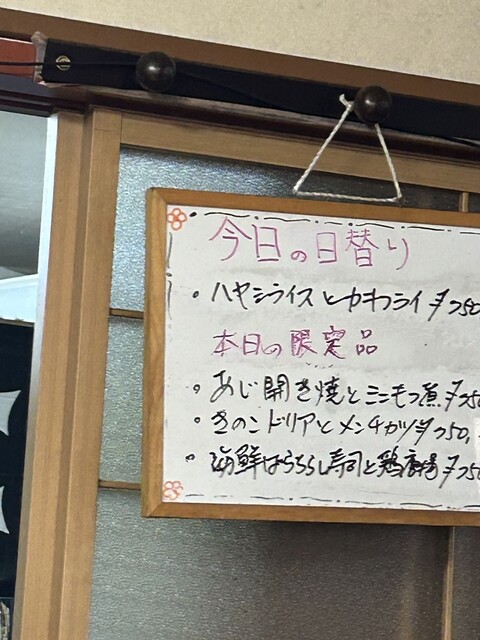 今日の日替り
・ハヤシライスとカキフライ ¥750
本日の限定品
・あじ開き焼とミニモツ煮 ¥750
・きのこドリアとメンチカツ ¥750.
・海鮮ばらちらし寿司と鶏唐揚 ¥750